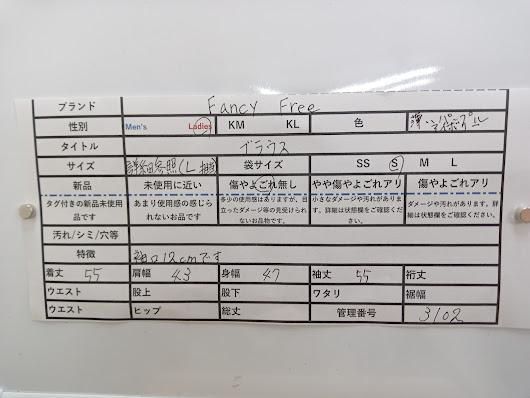 ブランド Fancy Free
性別 Men's Ladies KM KL 色 薄いパープル
タイトル ブラウス
サイズ 詳細参照(L相当) 袋サイズ SS S M L
新品 未使用に近い 傷やよごれ無し やや傷やよごれアリ 傷やよごれアリ
タグ付きの新品未使用品です あまり使用感の感じられないお品です 多少の使用感はありますが、目立ったダメージ等の見受けられないお品物です。 小さなダメージや汚れがあります。詳細は状態欄をご確認ください。 ダメージや汚れがあります。詳細は状態欄をご確認ください。
汚れ/シミ/穴等
特徴 袖口12cmです
着丈 55 肩幅 43 身幅 47 袖丈 55 裄丈
ウエスト 股上 股下 ワタリ 裾幅
ウエスト ヒップ 総丈 管理番号 3102